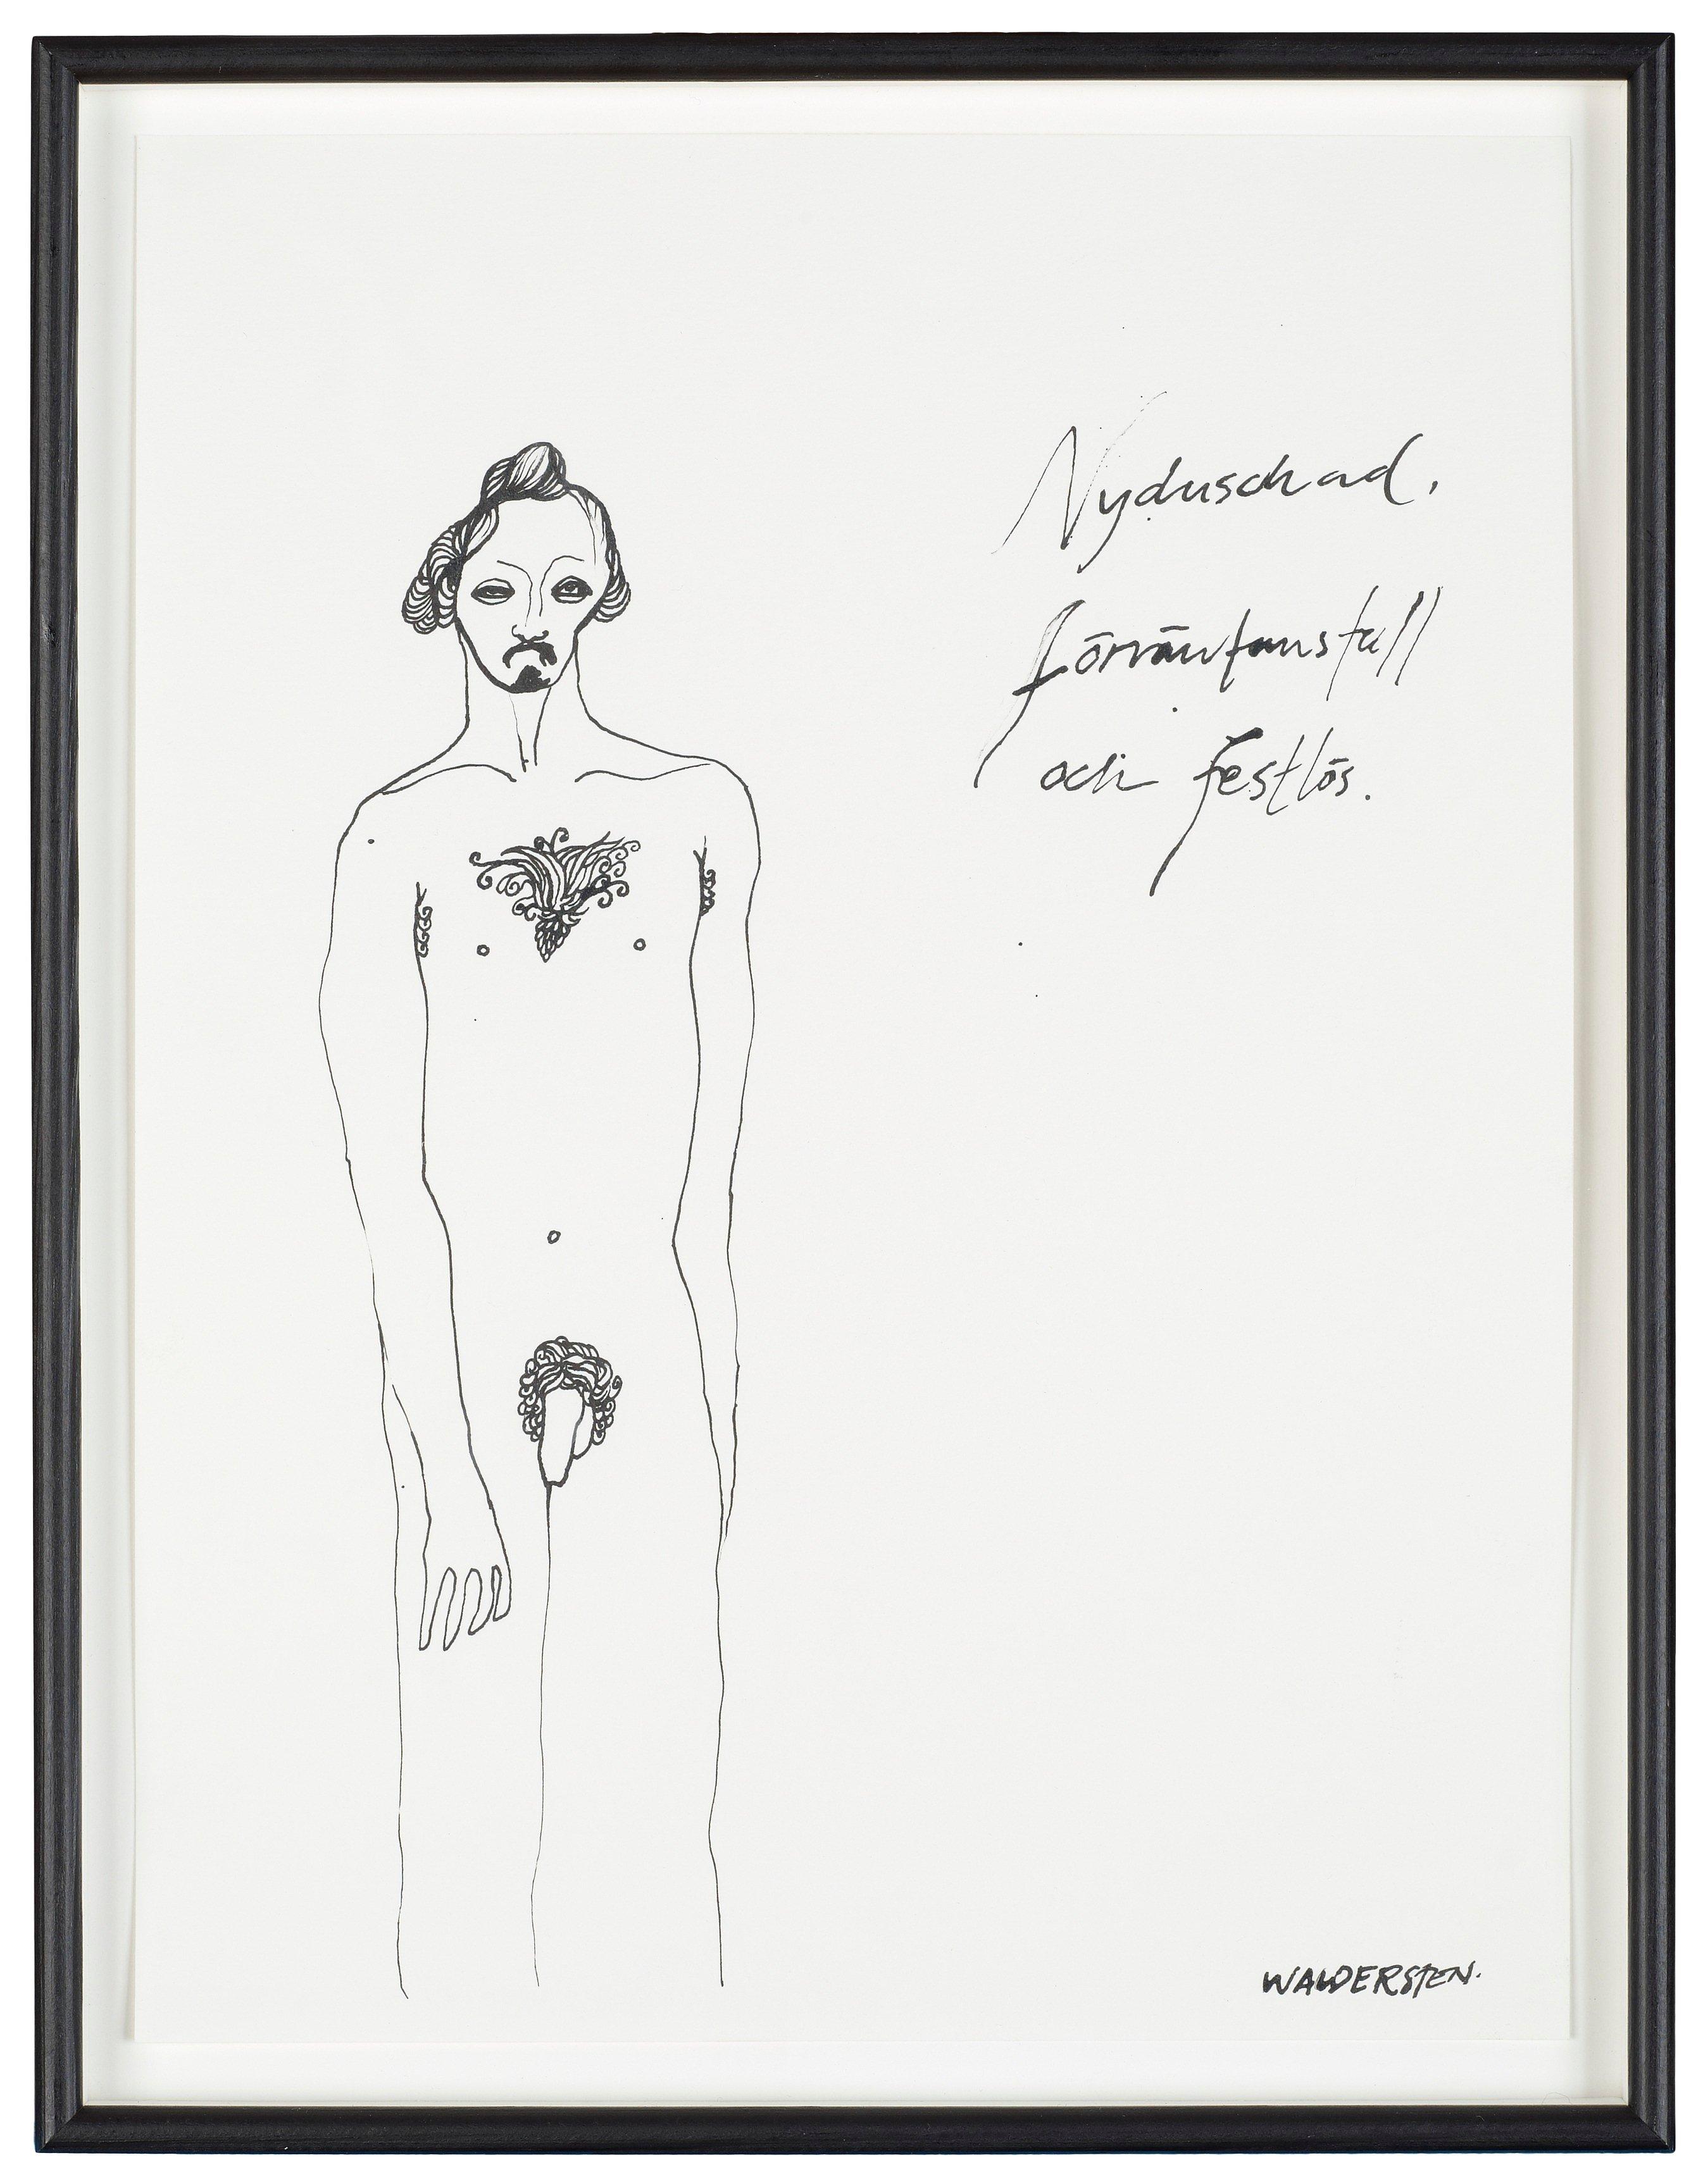 Nyduschad,
förväntansfull
och festlös.
WALDERSTEN.